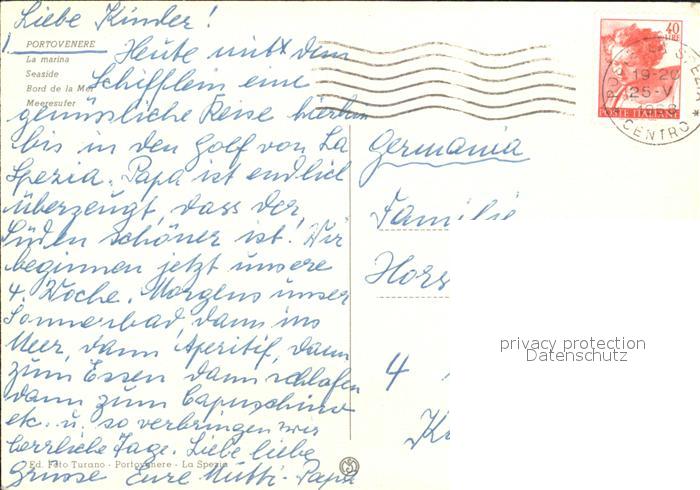 Liebe Kinder!
PORTOVENERE
La marina
Seaside
Bord de la Mer
Meeresufer
Heute mit dem
Schifflein eine
genüssliche Reise hierhin
bis in den Golf von La
Spezia. Papa ist endlich
überzeugt, dass der
Süden schöner ist! Wir
beginnen jetzt unsere
4. Woche. Morgens unser
Sonnenbad, dann ins
Meer, dann Aperitif, dann
zum Essen dann schlafen
dann zum Capuschino
etc. u. so verbringen wir
herrliche Tage. Liebe liebe
Grüsse Eure Mutti - Papa
Ed. Foto Turano - Portovenere - La Spezia
40
LIRE
POSTE ITALIANE
19-20
25-V
CENTRO
Germania
Familie
Hors
4
K
privacy protection
Datenschutz